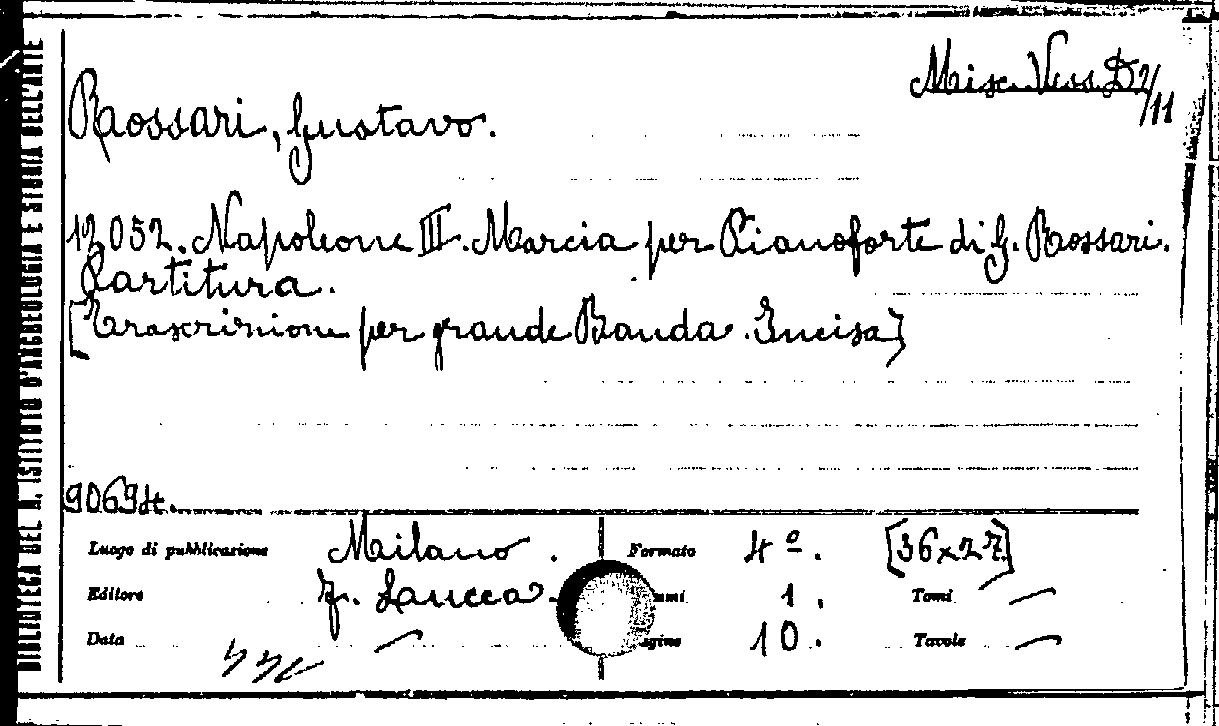 Misc. Vess. D2/11
Rossari, Gustavo.
12052. Napoleone III. Marcia per Pianoforte di G. Rossari.
Partitura.
[Trascrizione per grande Banda. Incisa]
90694.
Luogo di pubblicazione Milano. Formato 4º. [36x27]
Editore F. Lucca. 1. Tomi —
Data — 10. Tavole —
BIBLIOTECA DEL R. ISTITUTO D'ARCHEOLOGIA E STORIA DELL'ARTE